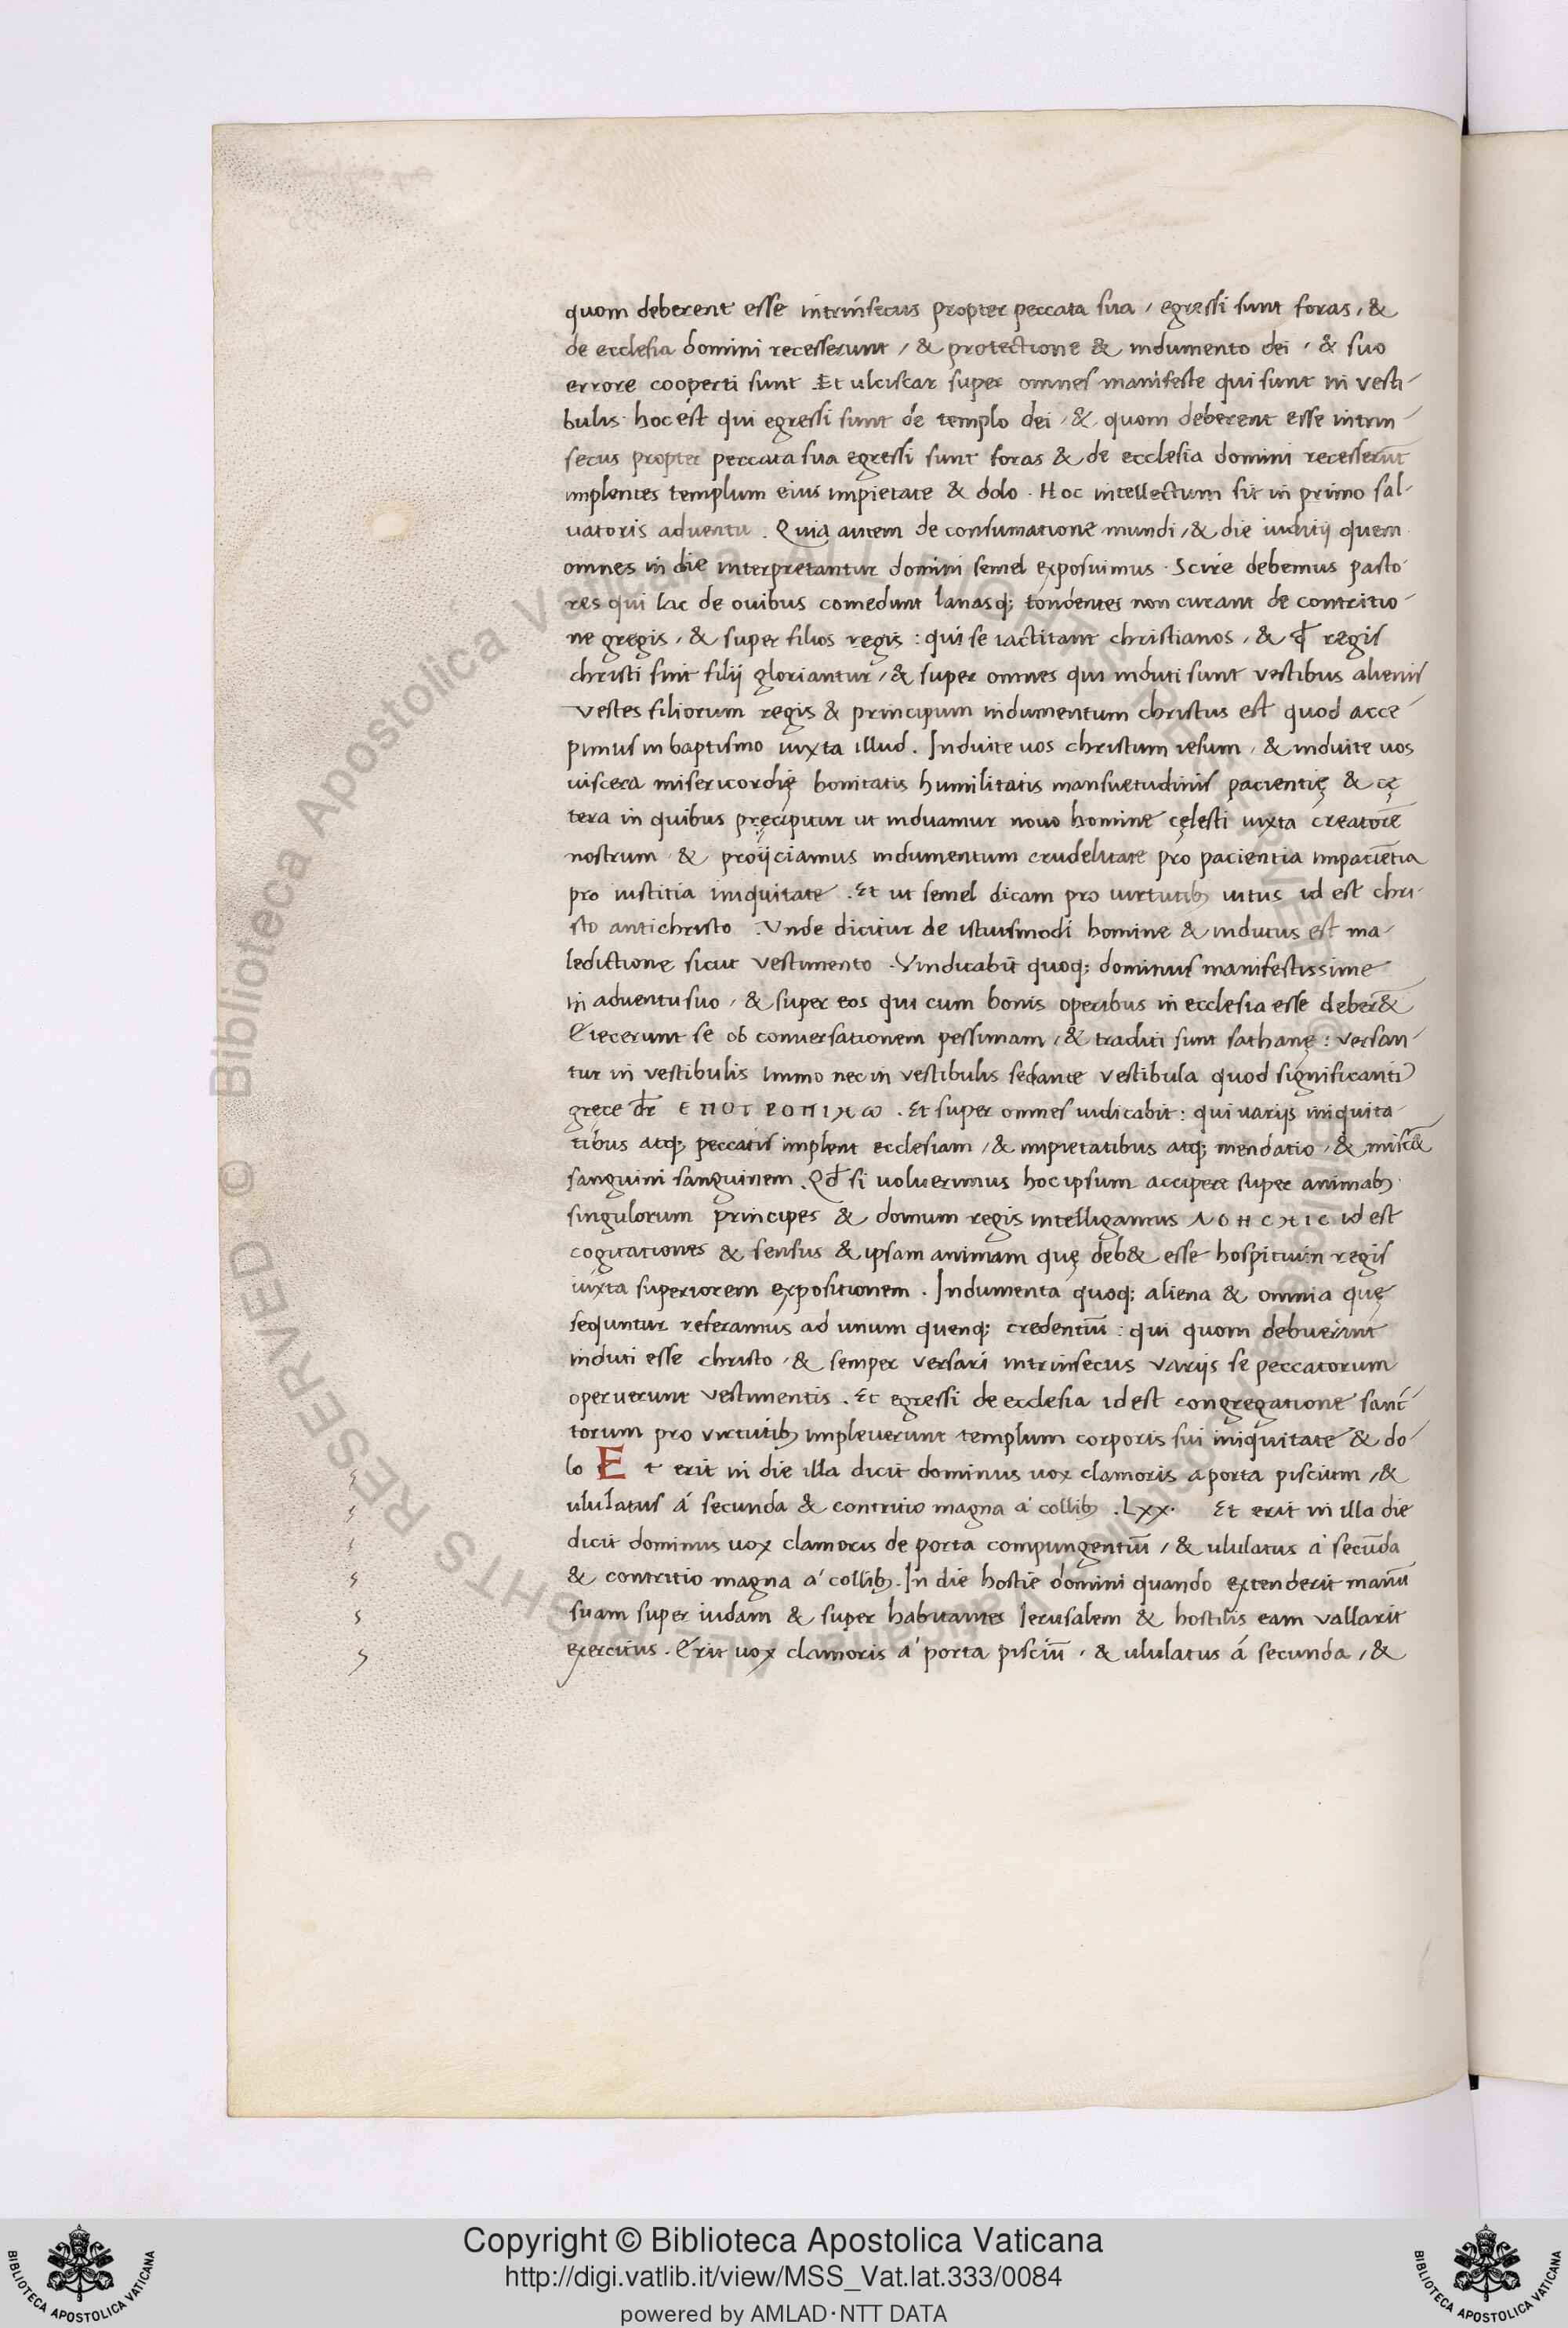 quom deberent esse intrinsecus propter peccata sua / egressi sunt foras / &
de ecclesia domini recesserunt / & protectione & indumento dei / & suo
errore cooperti sunt . Et ulciscar super omnes manifeste qui sunt in vesti-
bulis hoc est qui egressi sunt de templo dei / & quom deberent esse intrin-
secus propter peccata sua egressi sunt foras & de ecclesia domini recesserūt
implentes templum eius impietate & dolo . Hoc intellectum sit in primo sal-
uatoris aduentu . Quia autem de consumatione mundi / & die iuditij quem
omnes in die interpretantur domini semel exposuimus . Scire debemus pasto-
res qui lac de ouibus comedunt lanasq; tondentes non curant de contritio-
ne gregis / & super filios regis : qui se iactitant christianos / & qđ regis
christi sint filij gloriantur / & super omnes qui induti sunt vestibus alienis
Vestes filiorum regis & principum indumentum christus est quod acce-
pimus in baptismo iuxta illud . Induite uos christum iesum / & induite uos
uiscera misericordię bonitatis humilitatis mansuetudinis pacientię & cę
tera in quibus pręcipitur ut induamur nouo homine cęlesti iuxta creatorē
nostrum & proijciamus indumentum crudelitate pro pacientia impaciētia
pro iustitia iniquitate . Et ut semel dicam pro uirtutib; uitus id est chri-
sto antichristo . Vnde dicitur de istiusmodi homine & indutus est ma-
ledictione sicut vestimento . Vindicabit quoq; dominus manifestissime
in aduentu suo / & super eos qui cum bonis operibus in ecclesia esse deber&
Eiecerunt se ob conuersationem pessimam / & traditi sunt sathanę : versan-
tur in vestibulis immo nec in vestibulis sed ante vestibula quod significanti
gręce dr ЄΠΟΤΡΟΠΙΚω . Et super omnes iudicabit : qui varijs iniquita-
tibus atq; peccatis implent ecclesiam / & impietatibus atq; mendatio / & misc&
sanguini sanguinem . Qđ si uoluerimus hoc ipsum accipere super animab;
singulorum principes & domum regis intelligamus ΛΟΗCΗΙC id est
cogitationes & sensus & ipsam animam quę deb& esse hospitium regis
iuxta superiorem expositionem . Indumenta quoq; aliena & omnia quę
sequntur referamus ad unum quenq; credentiū : qui quom debuerint
induti esse christo / & semper versari intrinsecus varijs se peccatorum
operuerunt vestimentis . Et egressi de ecclesia id est congregatione sanc-
torum pro virtutib; impleuerunt templum corporis sui iniquitate & do-
lo Et erit in die illa dicit dominus uox clamoris a porta piscium / &
ululatus á secunda & contritio magna a' collib; . Lxx . Et erit in illa die
dicit dominus uox clamoris de porta compungentiū / & ululatus a' secūda
& contritio magna a' collib; . In die hostie domini quando extenderit manū
suam super iudam & super habitantes Ierusalem & hostilis eam vallarit
exercitus . Erit uox clamoris a' porta pisciū / & ululatus á secunda / &
Copyright © Biblioteca Apostolica Vaticana
http://digi.vatlib.it/view/MSS_Vat.lat.333/0084
powered by AMLAD·NTT DATA